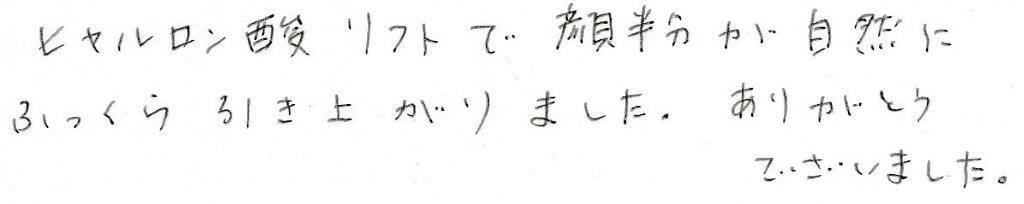 ヒヤルロン酸リフトで顔半分が自然に
ふっくら引き上がりました。ありがとう
ございました。